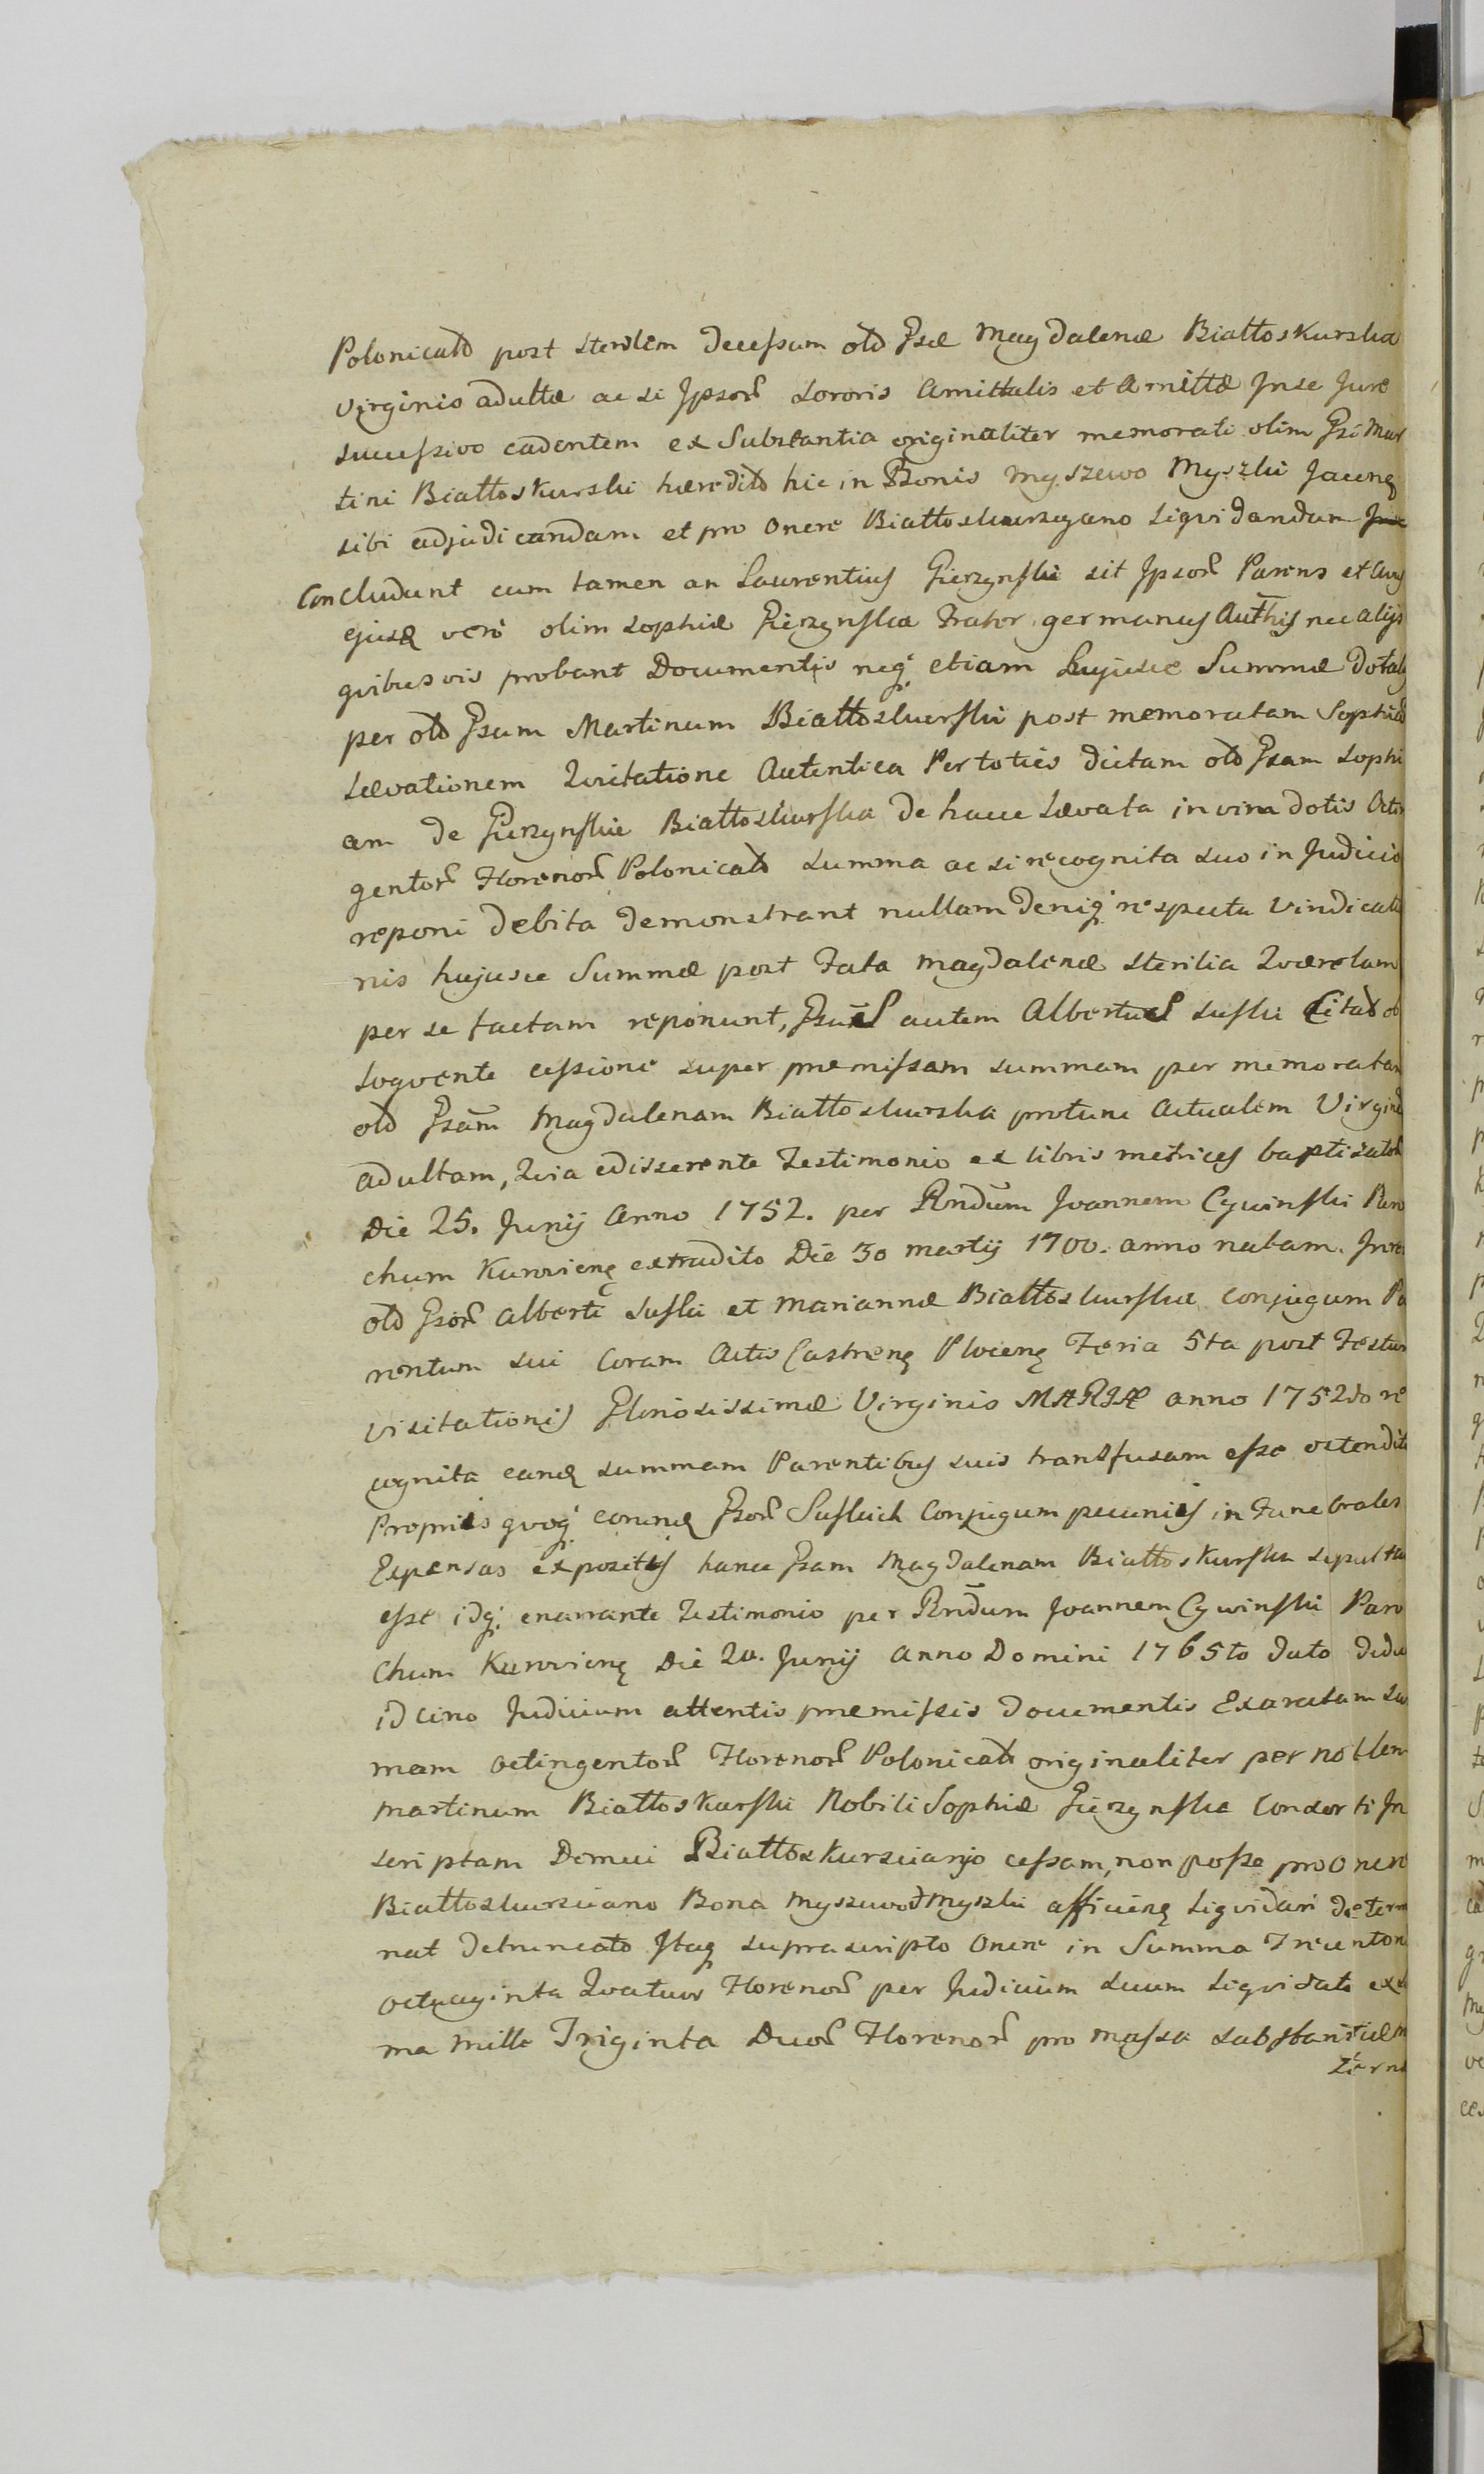 Polonicalb post sterilem decessum olb Gsæ Magdalenæ Białłoskurska
Virginis adultæ ac si Ipsor Sororis Amittalis et Amittæ Inse Jure
successivo cadentem ex Substantia originaliter memorati olim Gsi Mar
tini Białłoskurski hæredit hic in Bonis Myszewo Myszki Jacenę
sibi adjudicandam et pro Onere Białłoskurszgano Liqvidandam
Concludunt cum tamen an Laurentius Gierzynski sit Ipsor Parens et Avus
ejusq vero olim Sophiæ Gierzynska Frater germanus Authis nec alijs
qvibusvis probant Documentis neq etiam hujusce Summæ dotalis
per olb Gsum Martinum Białłoskurski post memoratam Sophia
Lævationem Qvitatione Autentica Per toties dictam olb Gsam Sophi
am de Gierzynskie Białłoskurska de hacce Lævata in vim dotis Octin
gentor Florenor Polonicalb summa ac si recognita suo in Judicio
reponi debita demonstrant nullam deniq respectu Vindicatio
nis hujusce Summæ post Fata Magdalenæ sterilia Qværelam
per se factam reponunt, Gsus autem Albertus Suski Citat ob
loqvente cessione super præmissam summam per memoratam
olb Gsam Magdalenam Białłoskurska protunc Actualem Virgine
adultam, Qvia edisserente Testimonio ex libris metrices baptisator
Die 25. Junij Anno 1752. per Rndum Joannem Cywinski Paro
chum Kurovienę extradito Die 30 martij 1700. anno natam. In re
olb Gsor Alberti Suski et Mariannæ Białłoskurskie Conjugum Pa
rentum sui Coram Actis Castrenę Plocenę Feria 5ta post Festum
Visitationis Gloriosissimæ Virginis MARIÆ anno 1752do re
cognita eandę summam Parentibus suis transfusam esse ostendit
Propriis qvoq eorundę Gsor Suskich Conjugum pecuniis in Funebrales
Expensas expositis hance Gsam Magdalenam Białłoskurska sepulta
esse idq. enarrante Testimonio per Rndum Joannem Cywinski Paro
Chum Kurovienę Die 20. Junij Anno Domini 1765to dato dedu
idcirco Judicium attentis præmissis Documentis Exaratam Su
mam octingentor Florenor Polonicalb originaliter per Noblem
Martinum Białłoskurski Nobili Sophiæ Gierzynska Consorti In
scriptam Domui Białłoskursciano cessam, non posse pro Onere
Białłoskursciano Bona Myszewo Myszki afficienę Liqvidari determi
nat detruncato Itaq suprascripto Onere in Summa Trecentor
octuaginta Qvatuor Florenor per Judicium suum Liqvidato ex
ma Mille Triginta Duor Florenor pro massa substantiæ